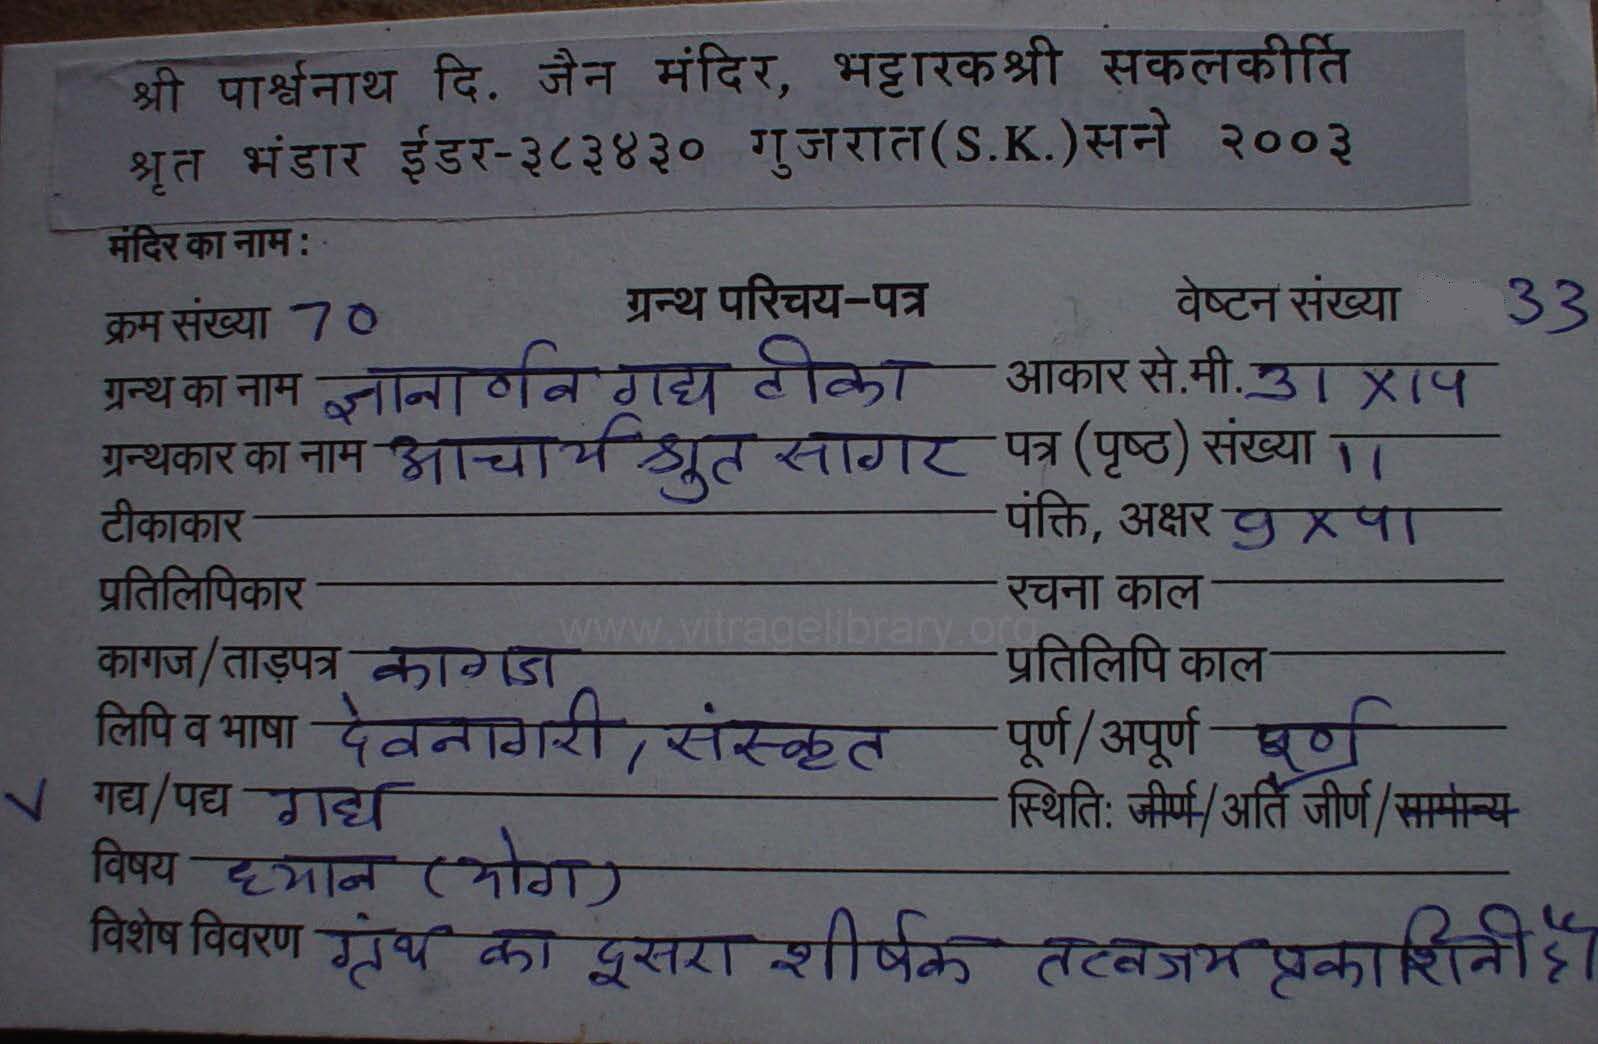 श्री पार्श्वनाथ दि. जैन मंदिर, भट्टारकश्री सकलकीर्ति
श्रृत भंडार ईडर-३८३४३० गुजरात(S.K.)सने २००३
मंदिर का नाम :
क्रम संख्या 70 ग्रन्थ परिचय-पत्र वेष्टन संख्या 33
ग्रन्थ का नाम ज्ञानार्णव गद्य टीका आकार से.मी. 31 X 14
ग्रन्थकार का नाम आचार्य श्रुत सागर पत्र (पृष्ठ) संख्या 11
टीकाकार पंक्ति, अक्षर 9 X 41
प्रतिलिपिकार रचना काल
www.vitragelibrary.org
कागज/ताड़पत्र कागज प्रतिलिपि काल
लिपि व भाषा देवनागरी, संस्कृत पूर्ण/अपूर्ण पूर्ण
गद्य/पद्य गद्य स्थिति: जीर्ण/अति जीर्ण/सामान्य
विषय ध्यान (योग)
विशेष विवरण ग्रंथ का दूसरा शीर्षक तत्वत्रय प्रकाशिनी है